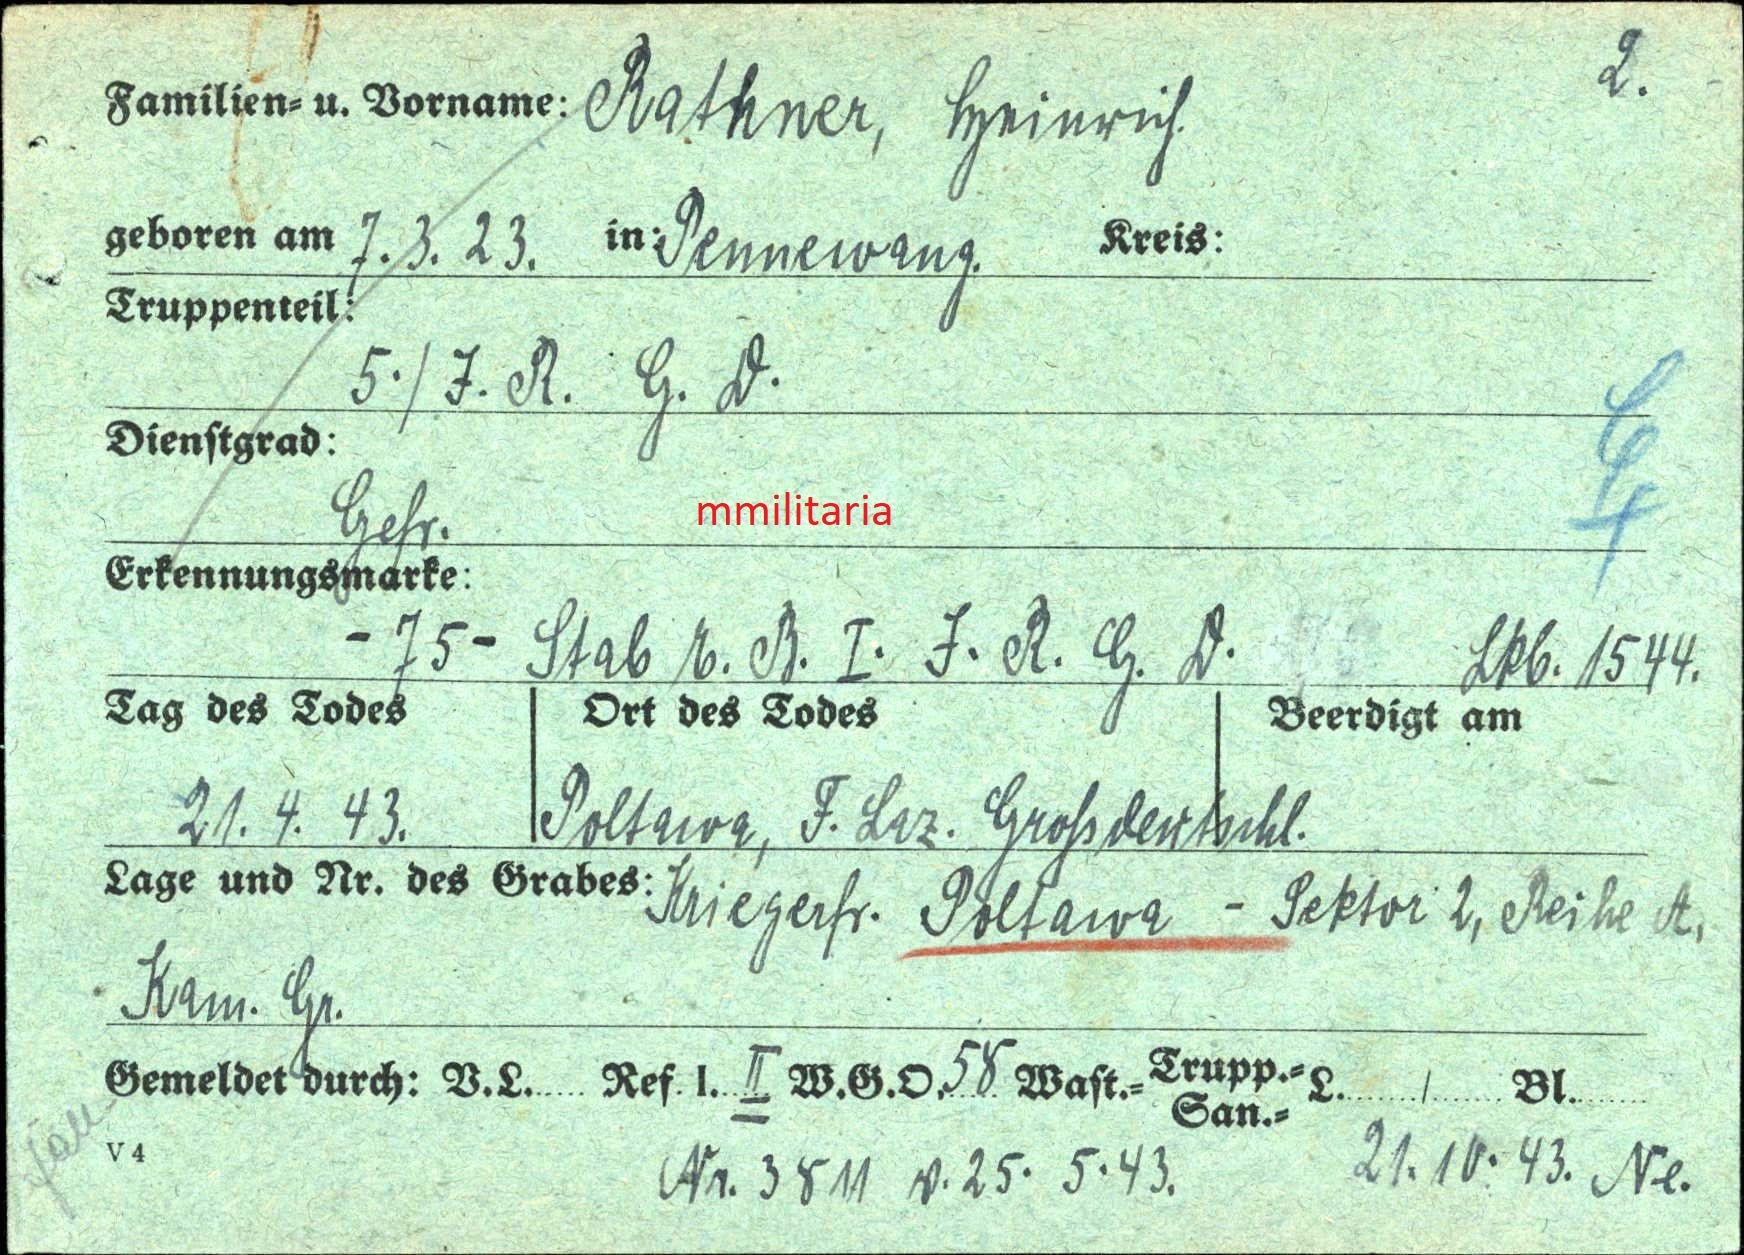 2.
Familien- u. Vorname: Rathner, Heinrich.
geboren am 7.3.23. in: Pennewang. Kreis:
Truppenteil:
5./J. R. G. D.
Dienstgrad:
Gefr.
mmilitaria
Erkennungsmarke:
-75- Stab r. B. I. J. R. G. D. Lkb. 1544.
Tag des Todes Ort des Todes Beerdigt am
21. 4. 43. Poltawa, F. Laz. Grossdeutschl.
Lage und Nr. des Grabes: Kriegerfr. Poltawa - Sektor 2, Reihe A,
Kam. Gr.
Gemeldet durch: V.L..... Ref. I. II W.G.O. 58 Wast.- Trupp.- San.- L......../....... Bl........
V 4
Nr. 3811 v. 25. 5. 43. 21. 10. 43. Ne.